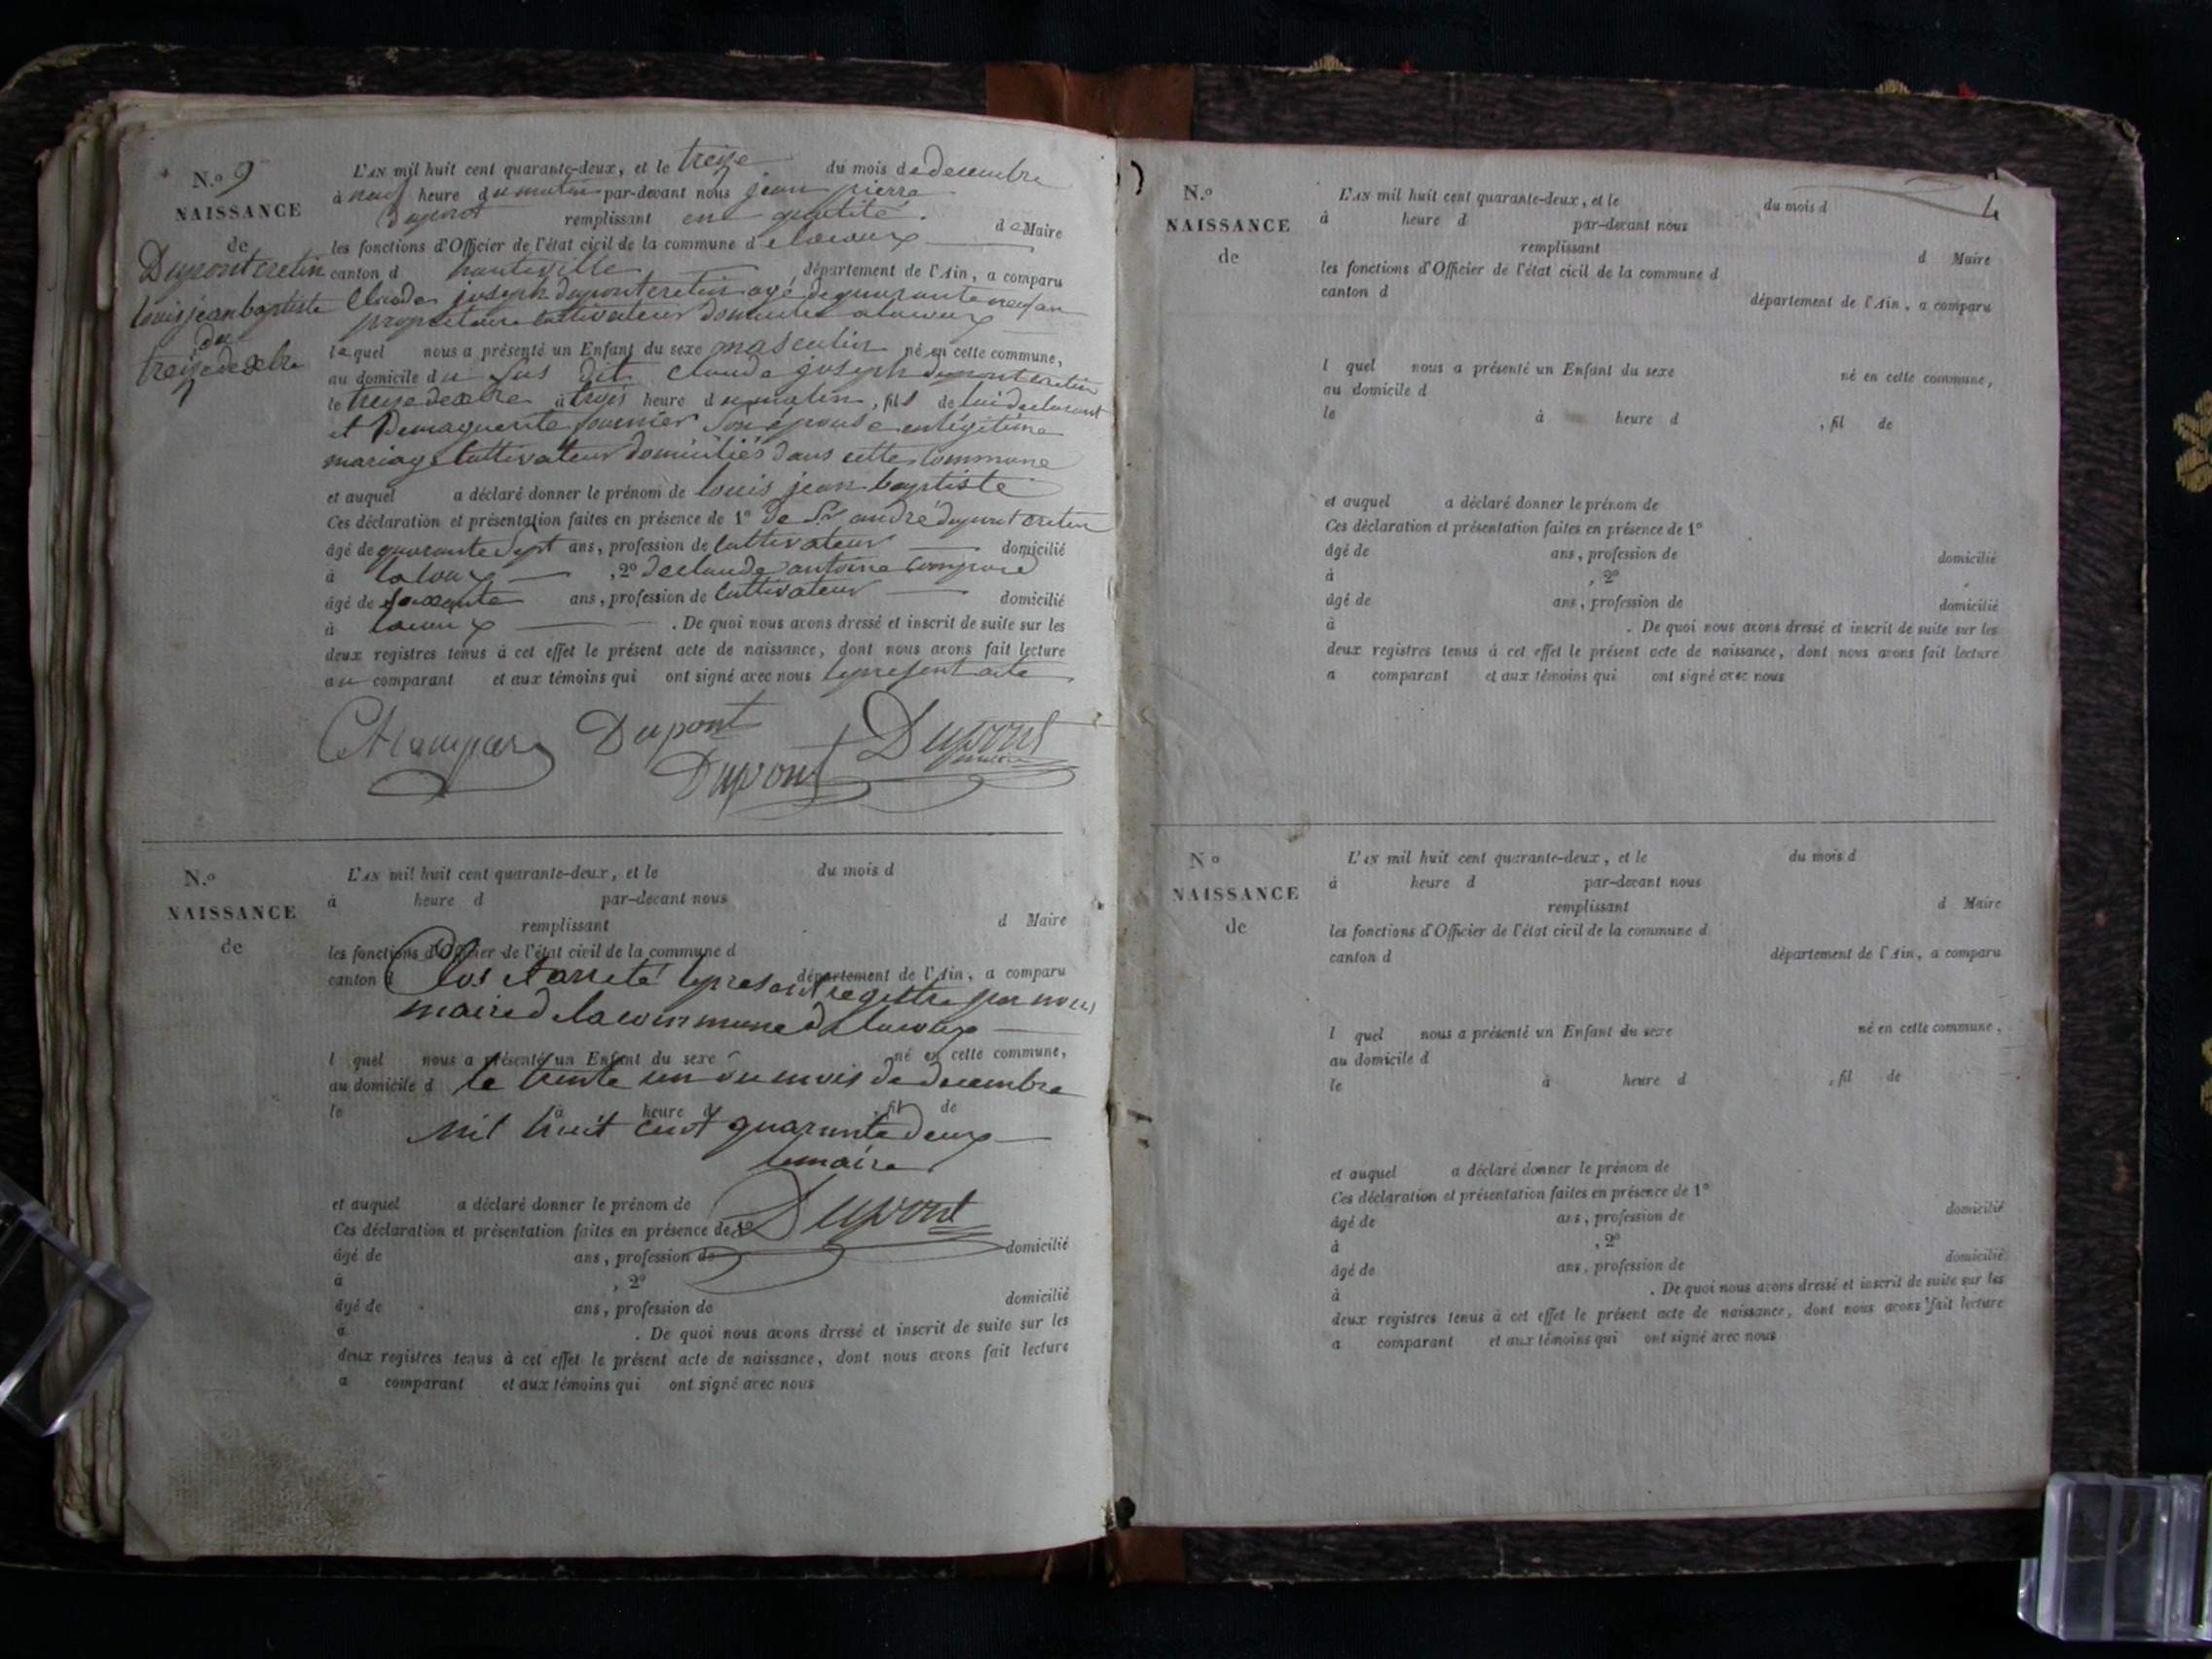 N.° 9
NAISSANCE
de
Dupont cretin
louis jean baptiste
du
treize dexbre
L'AN mil huit cent quarante-deux, et le treize du mois de decembre
à neuf heure du matin par-devant nous jean pierre
Dupont remplissant en qualité de Maire
les fonctions d'Officier de l'état civil de la commune de lacoux
canton d hauteville département de l'Ain, a comparu
Claude joseph dupont cretin agé de quarante neuf an
propriétaire cultivateur domicilié a lacoux
lequel nous a présenté un Enfant du sexe masculin né en cette commune,
au domicile du sus dit claude joseph dupont cretin
le treize dexbre à trois heure du matin, fils de lui declarant
et De marguerite fournier son épouse en légitime
mariage cultivateur domiciliés dans cette commune
et auquel a déclaré donner le prénom de louis jean baptiste
Ces déclaration et présentation faites en présence de 1° de Sr andré dupont cretin
âgé de quarante sept ans, profession de cultivateur domicilié
à lacoux, 2° de claude antoine
âgé de soixante ans, profession de cultivateur domicilié
à lacoux. De quoi nous avons dressé et inscrit de suite sur les
deux registres tenus à cet effet le présent acte de naissance, dont nous avons fait lecture
au comparant et aux témoins qui ont signé avec nous le present acte
Dupont Dupont
Dupont
N.°
NAISSANCE
de
L'AN mil huit cent quarante-deux, et le du mois d
à heure d par-devant nous
remplissant d Maire
les fonctions d'Officier de l'état civil de la commune d
canton d département de l'Ain, a comparu
Clos et arreté le present registre par nous
maire de la commune de lacoux
l quel nous a présenté un Enfant du sexe né en cette commune,
au domicile d
le trente un du mois de decembre
le à heure d , fil de
mil huit cent quarante deux
le maire
et auquel a déclaré donner le prénom de
Dupont
Ces déclaration et présentation faites en présence de 1°
âgé de ans, profession de domicilié
à , 2°
âgé de ans, profession de domicilié
à . De quoi nous avons dressé et inscrit de suite sur les
deux registres tenus à cet effet le présent acte de naissance, dont nous avons fait lecture
a comparant et aux témoins qui ont signé avec nous
4
N.°
NAISSANCE
de
L'AN mil huit cent quarante-deux, et le du mois d
à heure d par-devant nous
remplissant d Maire
les fonctions d'Officier de l'état civil de la commune d
canton d département de l'Ain, a comparu
l quel nous a présenté un Enfant du sexe né en cette commune,
au domicile d
le à heure d , fil de
et auquel a déclaré donner le prénom de
Ces déclaration et présentation faites en présence de 1°
âgé de ans, profession de domicilié
à , 2°
âgé de ans, profession de domicilié
à . De quoi nous avons dressé et inscrit de suite sur les
deux registres tenus à cet effet le présent acte de naissance, dont nous avons fait lecture
a comparant et aux témoins qui ont signé avec nous
N.°
NAISSANCE
de
L'AN mil huit cent quarante-deux, et le du mois d
à heure d par-devant nous
remplissant d Maire
les fonctions d'Officier de l'état civil de la commune d
canton d département de l'Ain, a comparu
l quel nous a présenté un Enfant du sexe né en cette commune,
au domicile d
le à heure d , fil de
et auquel a déclaré donner le prénom de
Ces déclaration et présentation faites en présence de 1°
âgé de ans, profession de domicilié
à , 2°
âgé de ans, profession de domicilié
à . De quoi nous avons dressé et inscrit de suite sur les
deux registres tenus à cet effet le présent acte de naissance, dont nous avons fait lecture
a comparant et aux témoins qui ont signé avec nous